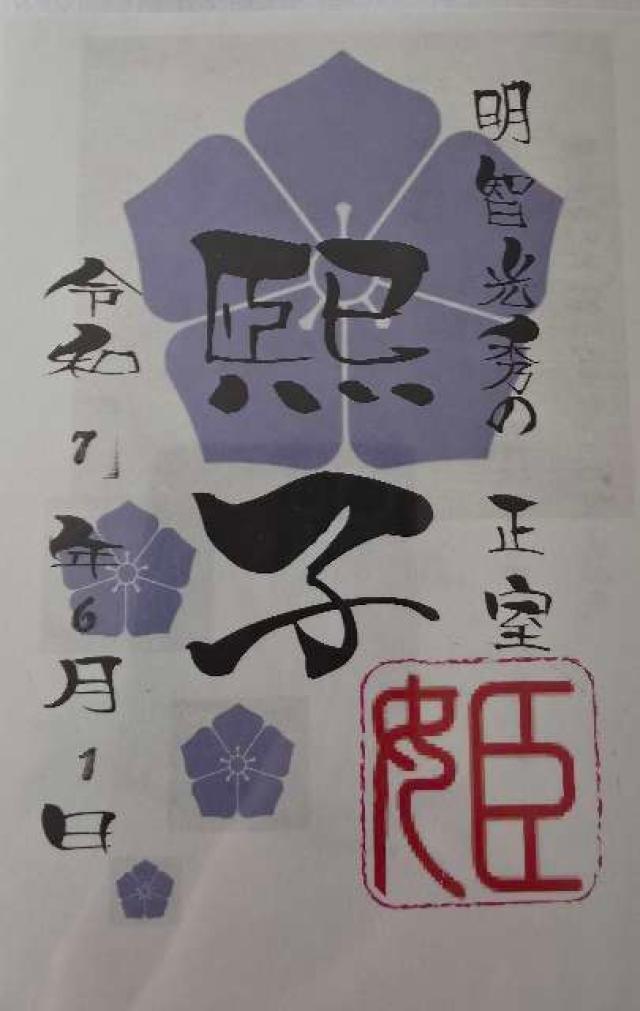 明智光秀の 正室
熙子
令和7年6月1日
姫